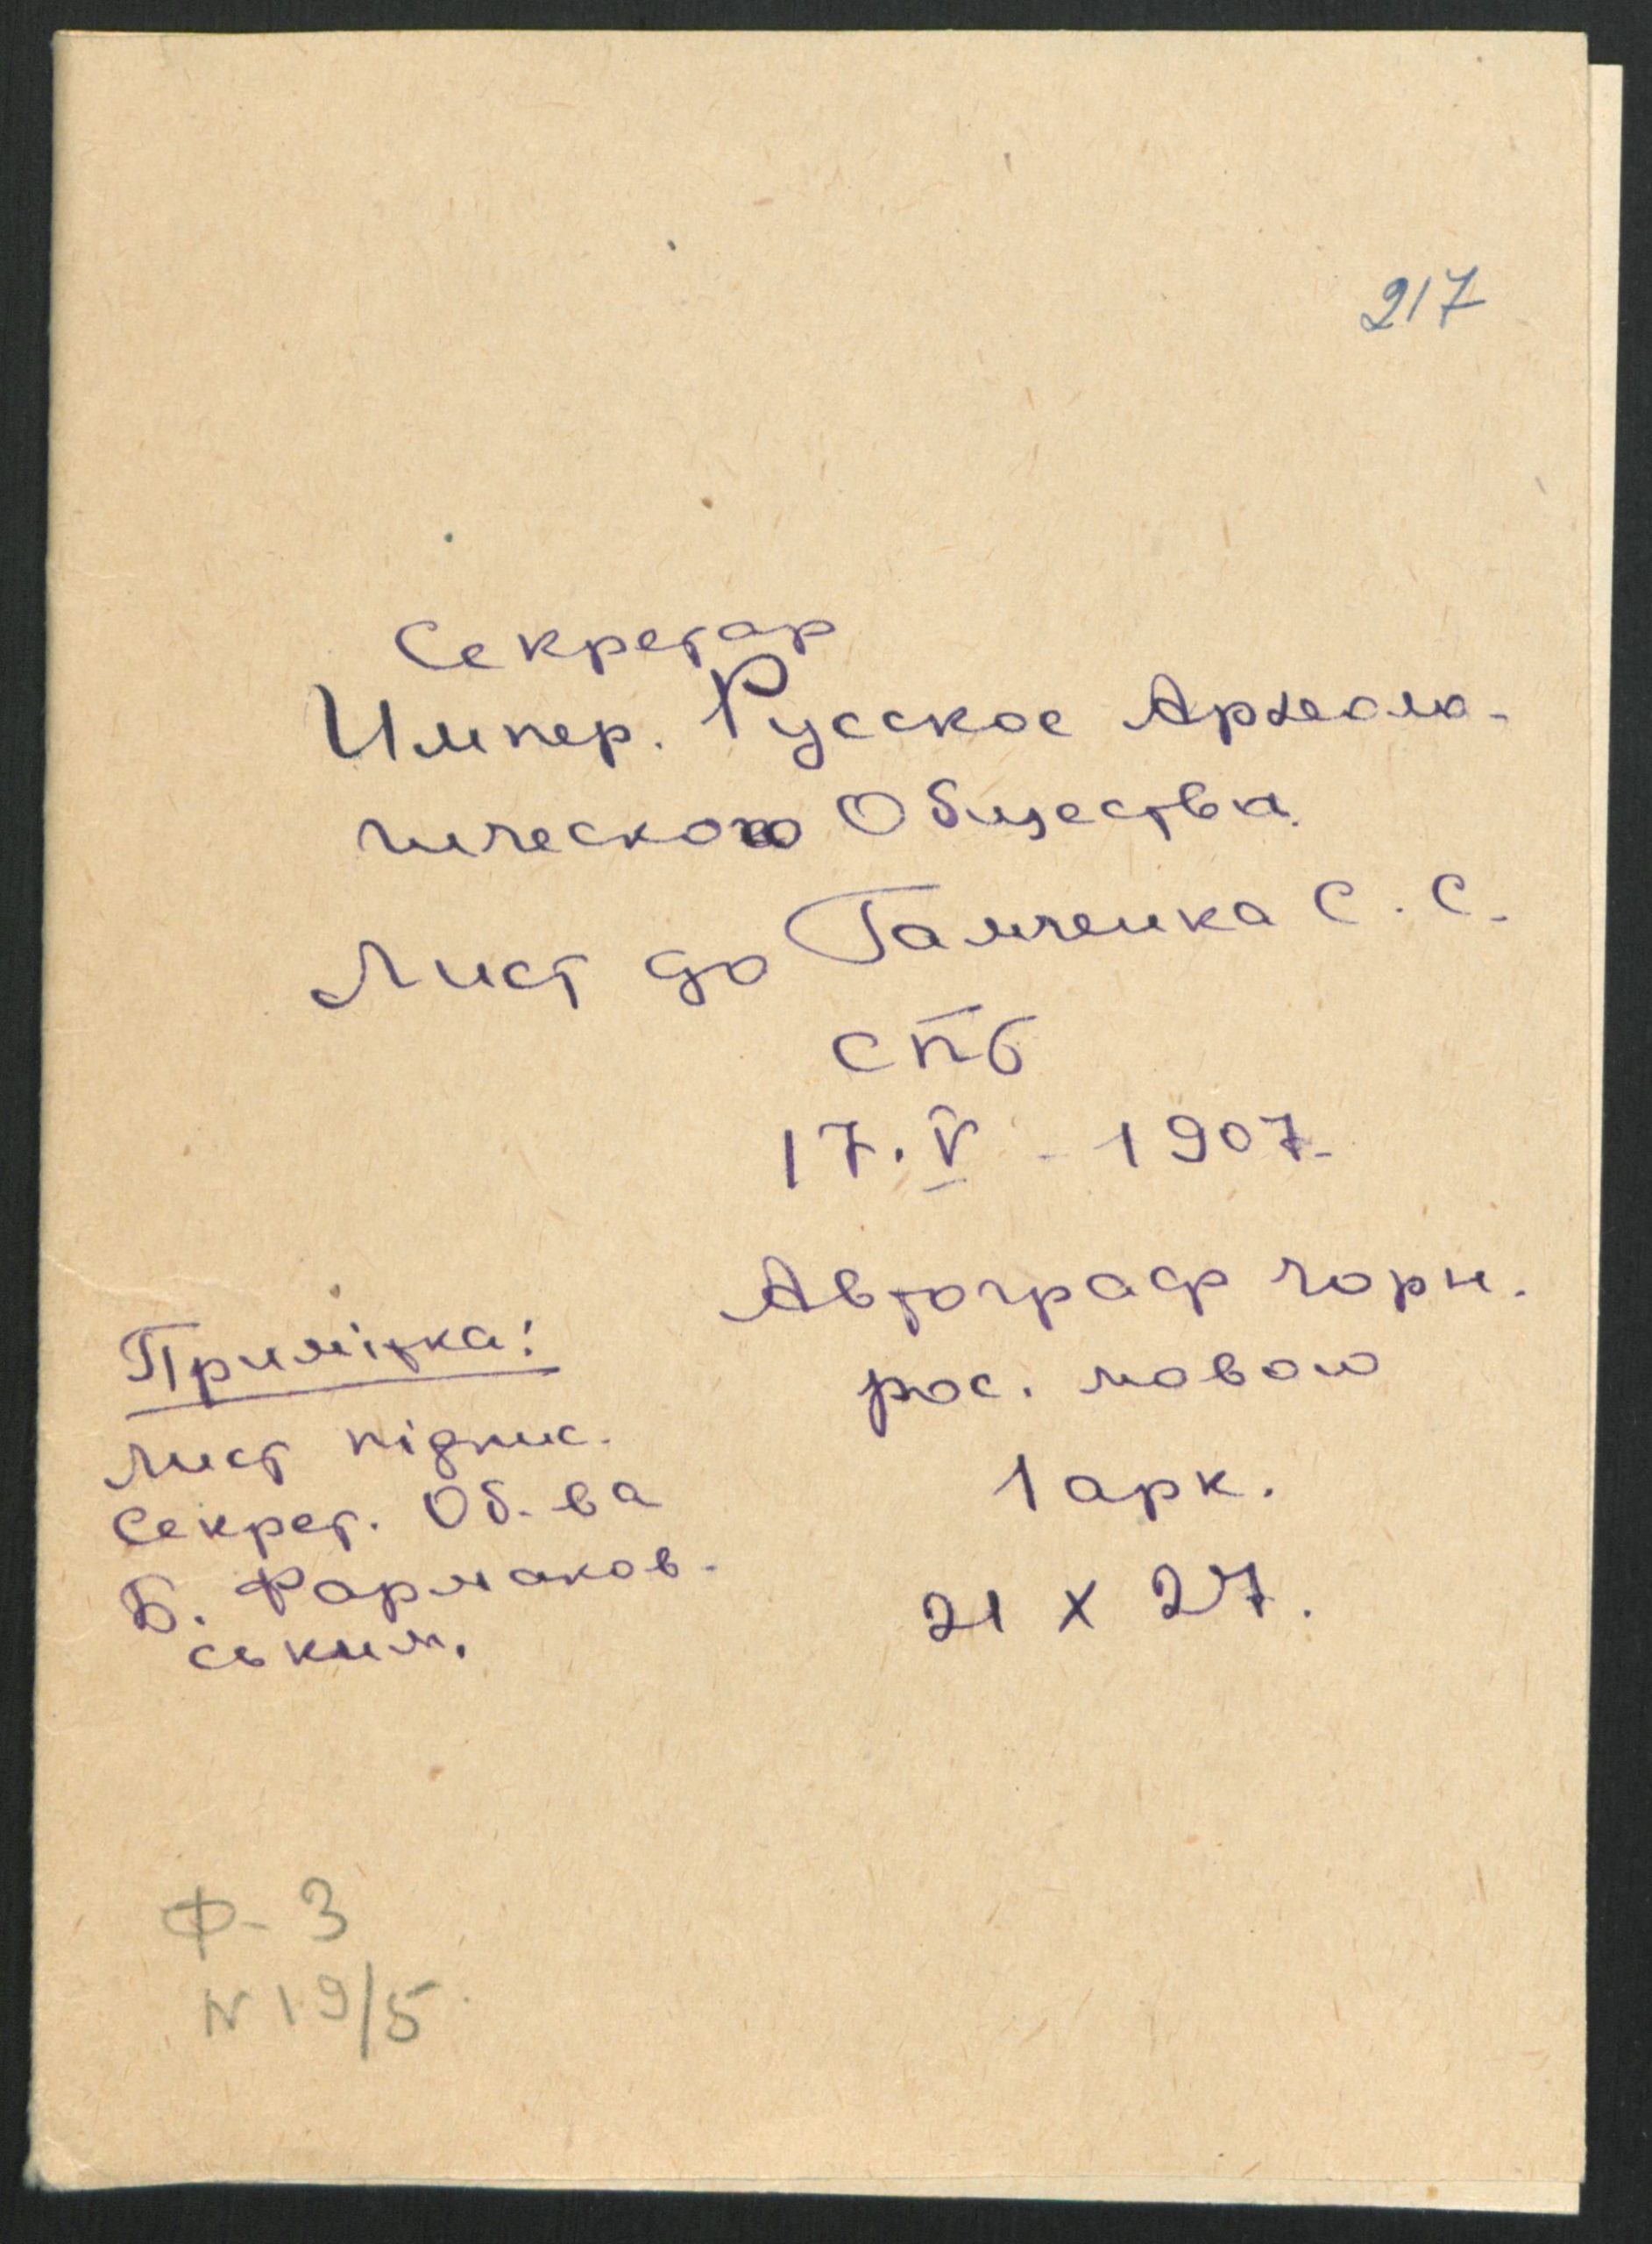 217
Секретар
Импер. Русское Археоло-
гического Общества
Лист до Гамченка С. С.
СПб
17. V - 1907.
Автограф чорн.
рос. мовою
1 арк.
21 x 27.
Примітка:
Лист підпис.
Секрет. Об-ва
Б. Фармаков-
ським.
Ф-3
N 19/5